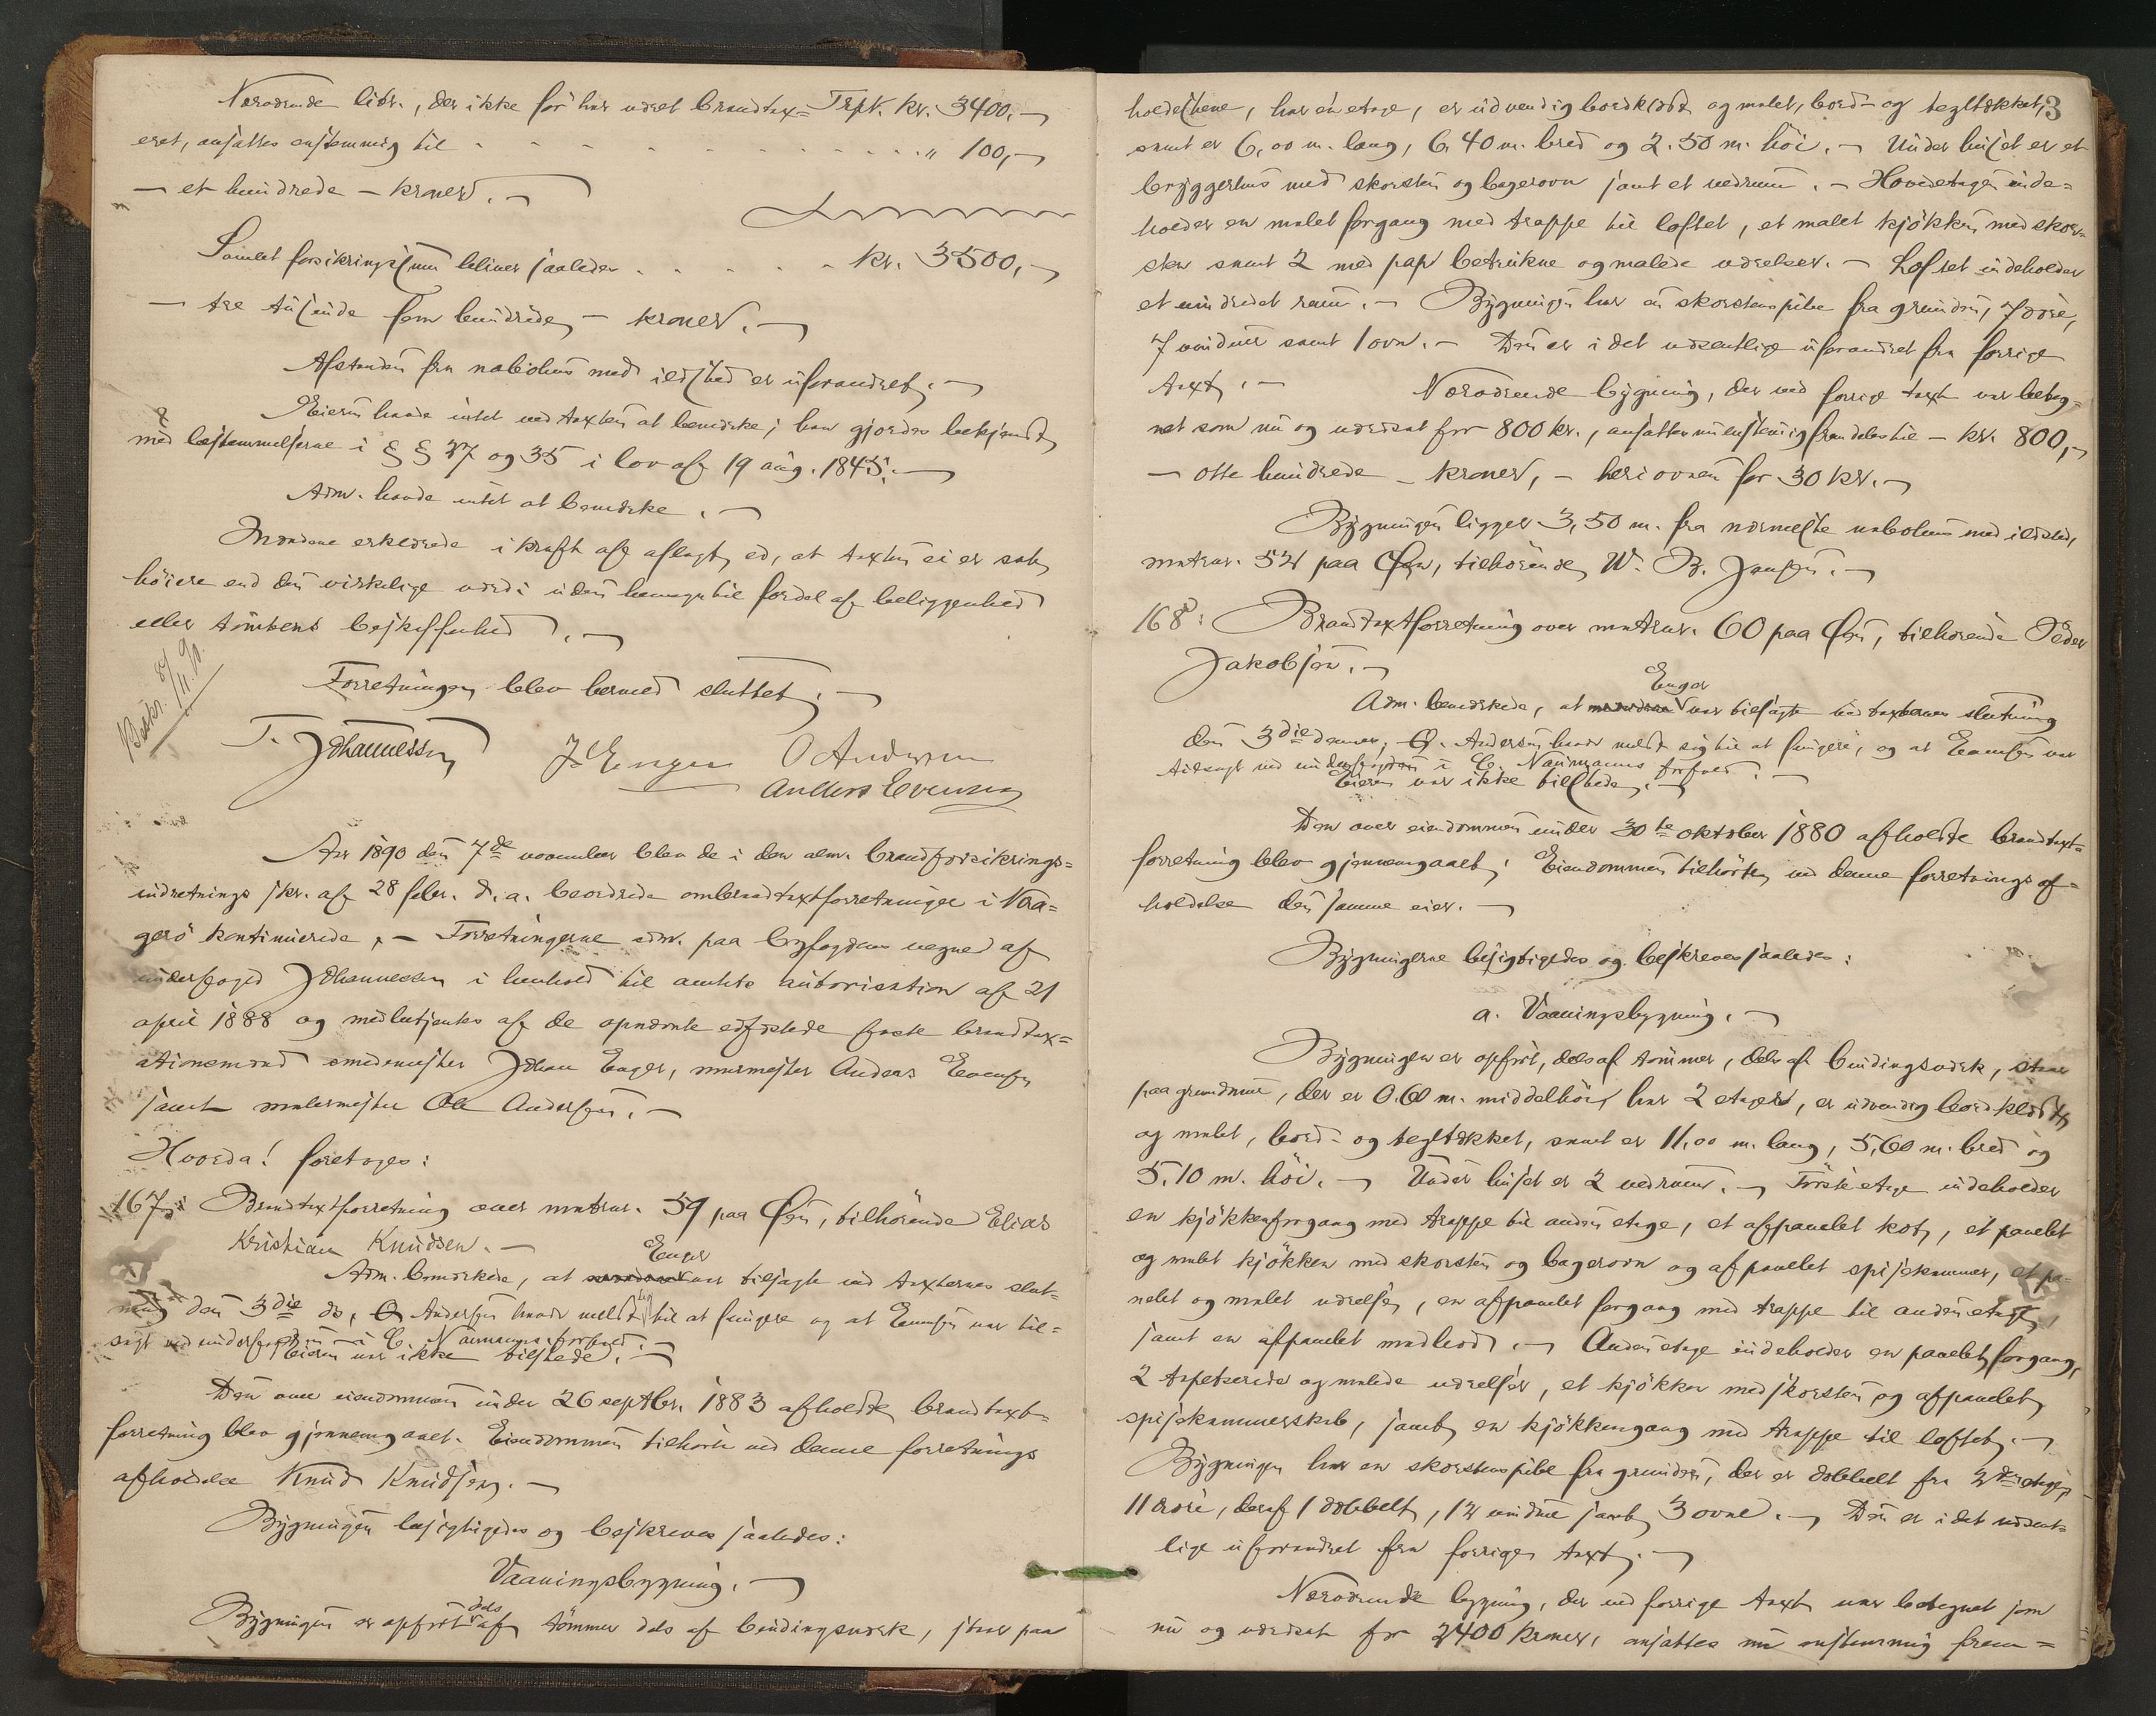 Nærværende litr., der ikke før har været brandtax= Trspt. kr. 3400,-
eret, ansættes enstemmig til . . . . . . . . . . . „ 100,-
- et hundrede - kroner. -
Samlet forsikringssum bliver saaledes . . . . . - kr. 3500,-
- tre tusinde fem hundrede - kroner. -
Afstanden fra nabohus med ildsted er uforandret. -
Eieren havde intet ved taxten at bemærke; han gjordes bekjendt
med bestemmelserne i §§ 37 og 35 i lov af 19 aug. 1845. -
Adm. havde intet at bemærke. -
Mændene erklærede i kraft af aflagt ed, at taxten ei er sat
høiere end den virkelige værdi uden hensyn til fordel af beliggenhed
eller tomtens beskaffenhed. -
Forretningen blev hermed sluttet. -
T. Johannessen J Enger O Andersen
Anders Evensen
Aar 1890 den 7de november blev de i den alm. brandforsikrings=
indretnings skr. af 28 febr. d. a. beordrede ombrandtaxtforretninger i Kra=
gerø kontinuerede. - Forretningerne adm. paa byfogdens vegne af
underfoged Johannessen i henhold til amtets autorisation af 21
april 1888 og medbetjentes af de opnævnte edfæstede faste brandtax=
ationsmænd smedemester Johan Enger, murmester Anders Evensen
samt malermester Ole Andersen. -
Hvorda! foretoges:
167de: Brandtaxtforretning over matrnr. 59 paa Øen, tilhørende Elias
Kristian Knudsen. -
Enger
Adm. bemærkede, at var tilsagte ved taxternes slut=
ning den 3die ds, O. Andersen havde meldt sig til at fungere og at Evensen var til=
sagt ved underfogden i C. Naumanns forfald. -
Eieren var ikke tilstede. -
Den over eiendommen under 26 septbr. 1883 afholdte brandtaxt=
forretning blev gjennemgaaet. Eiendommen tilhørte ved denne forretnings
afholdelse Knud Knudsen. -
Bygningen besigtigedes og beskreves saaledes:
Vaaningsbygning. -
dels
Bygningen er opført af tømmer dels af bindingsværk, staar paa
3
holdestene, har en etage, er udvendig bordklædt og malet, bord- og tegltækket,
samt er 6,00 m. lang, 6,40 m. bred og 2.50 m. høi. - Under huset er et
bryggerhus med skorsten og bagerovn samt et vedrum. - Hovedetagen inde=
holder en malet forgang med trappe til loftet, et malet kjøkken med skor=
sten samt 2 med pap betrukne og malede værelser. - Loftet indeholder
et indredet rum. - Bygningen har en skorstenspibe fra grunden, 7 døre,
7 vinduer samt 1 ovn. - Den er i det væsentlige uforandret fra forrige
taxt. - Nærværende bygning, der ved forrige taxt var beteg=
net som nu og værdsat for 800 kr., ansættes nu enstemmig fremdeles til - kr. 800,-
- otte hundrede - kroner, - heri ovnen for 30 kr. -
Bygningen ligger 3,50 m. fra nærmeste nabohus med ildsted,
matrnr. 54 paa Øen, tilhørende W. B. Jensen. -
168de: Brandtaxtforretning over matrnr. 60 paa Øen, tilhørende Peder
Jakobsen. -
Enger
Adm. bemærkede, at var tilsagte ved taxternes slutning
den 3die dennes, O. Andersen havde meldt sig til at fungere, og at Evensen var
tilsagt ved underfogden i C. Naumanns forfald. -
Eieren var ikke tilstede. -
Den over eiendommen under 30te oktober 1880 afholdte brandtaxt=
forretning blev gjennemgaaet; Eiendommen tilhørte ved denne forretnings af=
holdelse den samme eier. -
Bygningerne besigtigedes og beskreves saaledes:
a. Vaaningsbygning. -
Bygningen er opført, dels af tømmer, dels af bindingsværk, staar
paa grundmur, der er 0.60 m. middelhøi, har 2 etager, er udvendig bordklædt
og malet, bord- og tegltækket, samt er 11,00 m. lang, 5,60 m. bred og
5.10 m. høi. - Under huset er 2 vedrum. - Første etage indeholder
en kjøkkenforgang med trappe til anden etage, et afpanelet kot, et panelet
og malet kjøkken med skorsten og bagerovn og afpanelet spisekammer, et pa=
nelet og malet værelse, en afpanelet forgang med trappe til anden etage,
samt en afpanelet madbod. - Anden etage indeholder en panelet forgang,
2 tapetserede og malede værelser, et kjøkken med skorsten og afpanelet
spisekammerskab, samt en kjøkkengang med trappe til loftet. -
Bygningen har en skorstenspibe fra grunden, der er dobbelt fra 2den etage,
11 døre, deraf 1 dobbelt, 12 vinduer samt 3 ovne. - Den er i det væsent=
lige uforandret fra forrige taxt. -
Nærværende bygning, der ved forrige taxt var betegnet som
nu og værdsat for 2400 kroner, ansættes nu enstemmig frem=